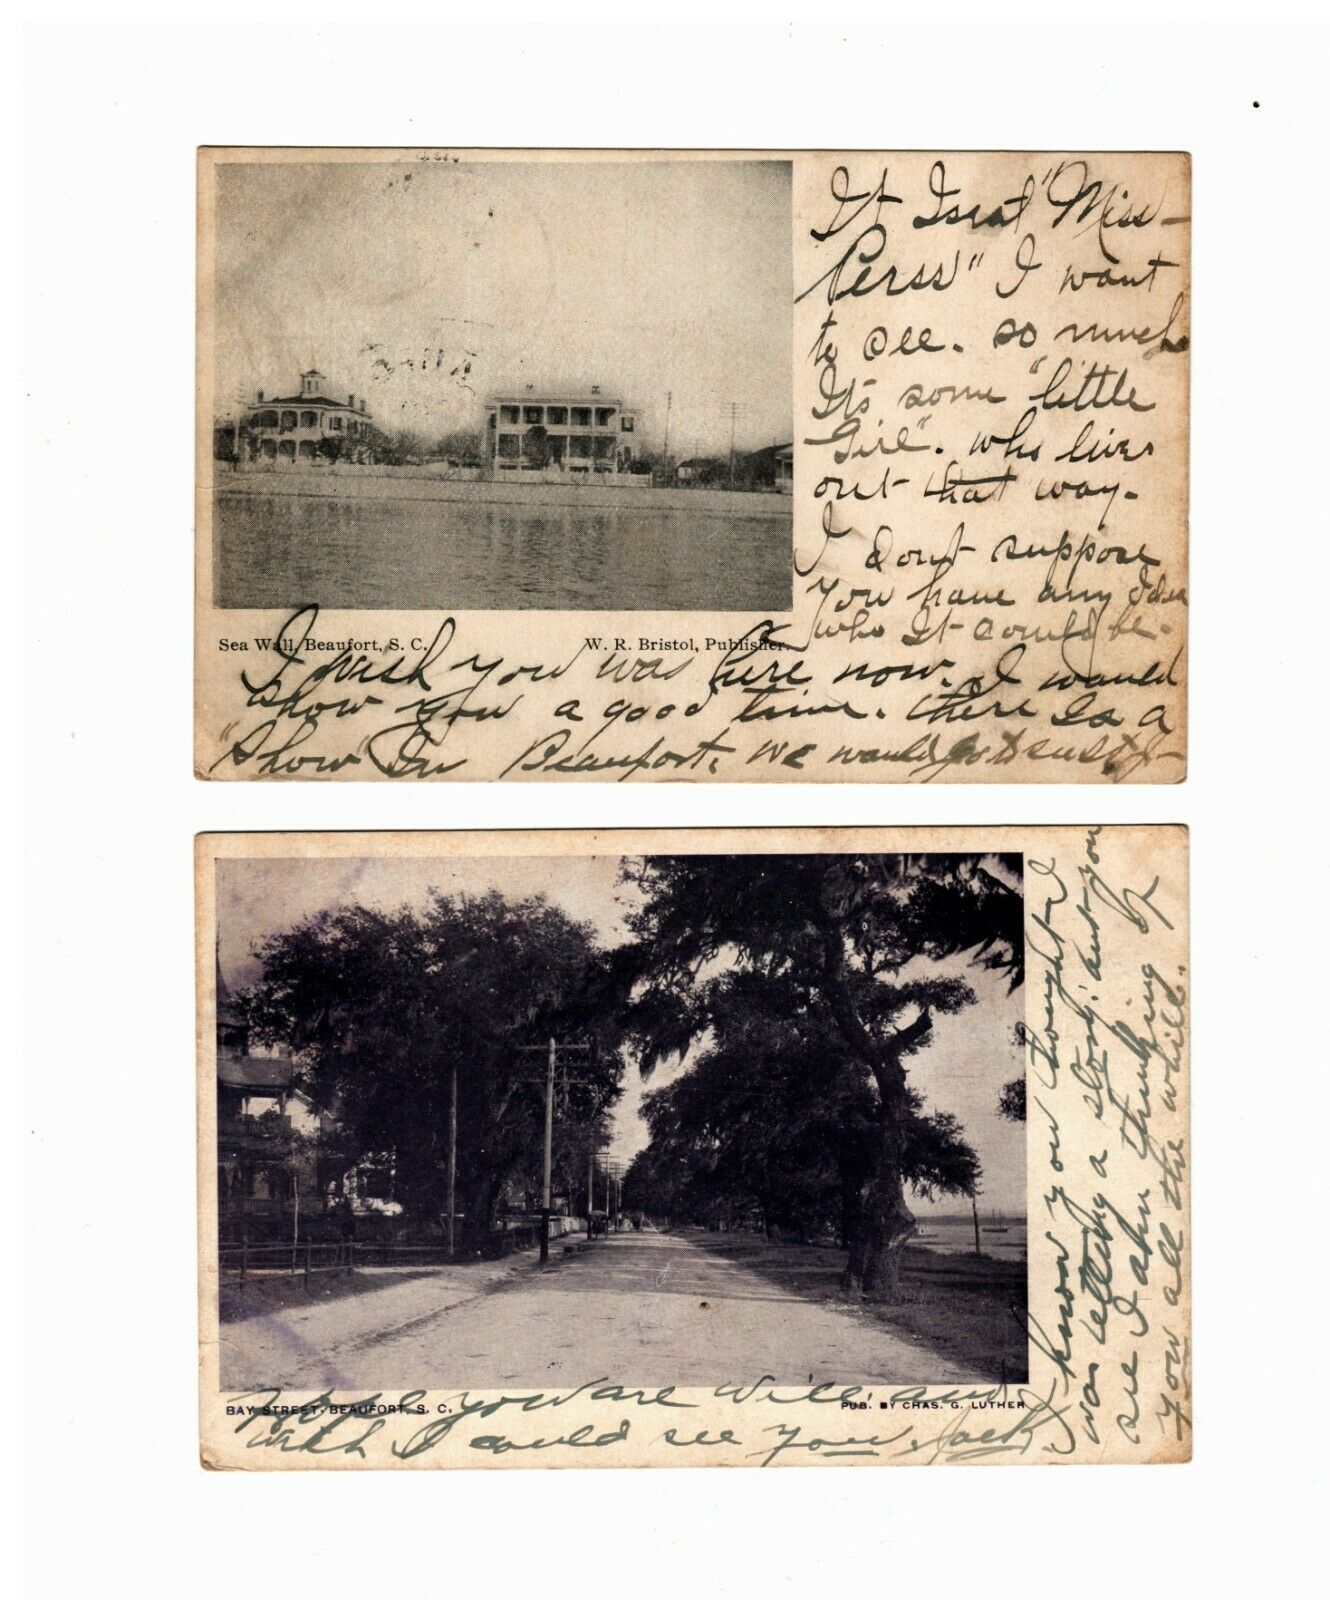 It Isnat "Miss-
Perss" I want
to see. so much
Its some "little
Girl". who lives
out that way.
I dont suppose
you have any Idea
who It could be.
Sea Wall, Beaufort, S. C. W. R. Bristol, Publisher.
I wish you was here now. I would
show you a good time. there Is a
"Show" In Beaufort, we would go to see It
BAY STREET, BEAUFORT, S. C. PUB. BY CHAS. G. LUTHER
hope you are well: and
wish I could see you. Jack.
I know you thought I
was telling a story: but you
see I am thinking of
you all the while.